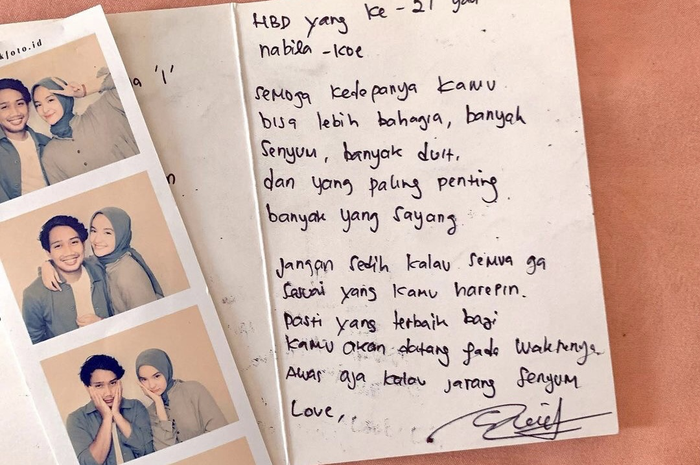 foto.id
a '1'
n
HBD yang ke - 21
nabila - koe
semoga kedepanya kamu
bisa lebih bahagia, banyak
senyum, banyak duit.
dan yang paling penting
banyak yang sayang
Jangan sedih kalau semua ga
sesuai yang kamu harepin.
pasti yang terbaik bagi
kamu akan datang pada waktunya
Awas aja kalau jarang senyum
Love,